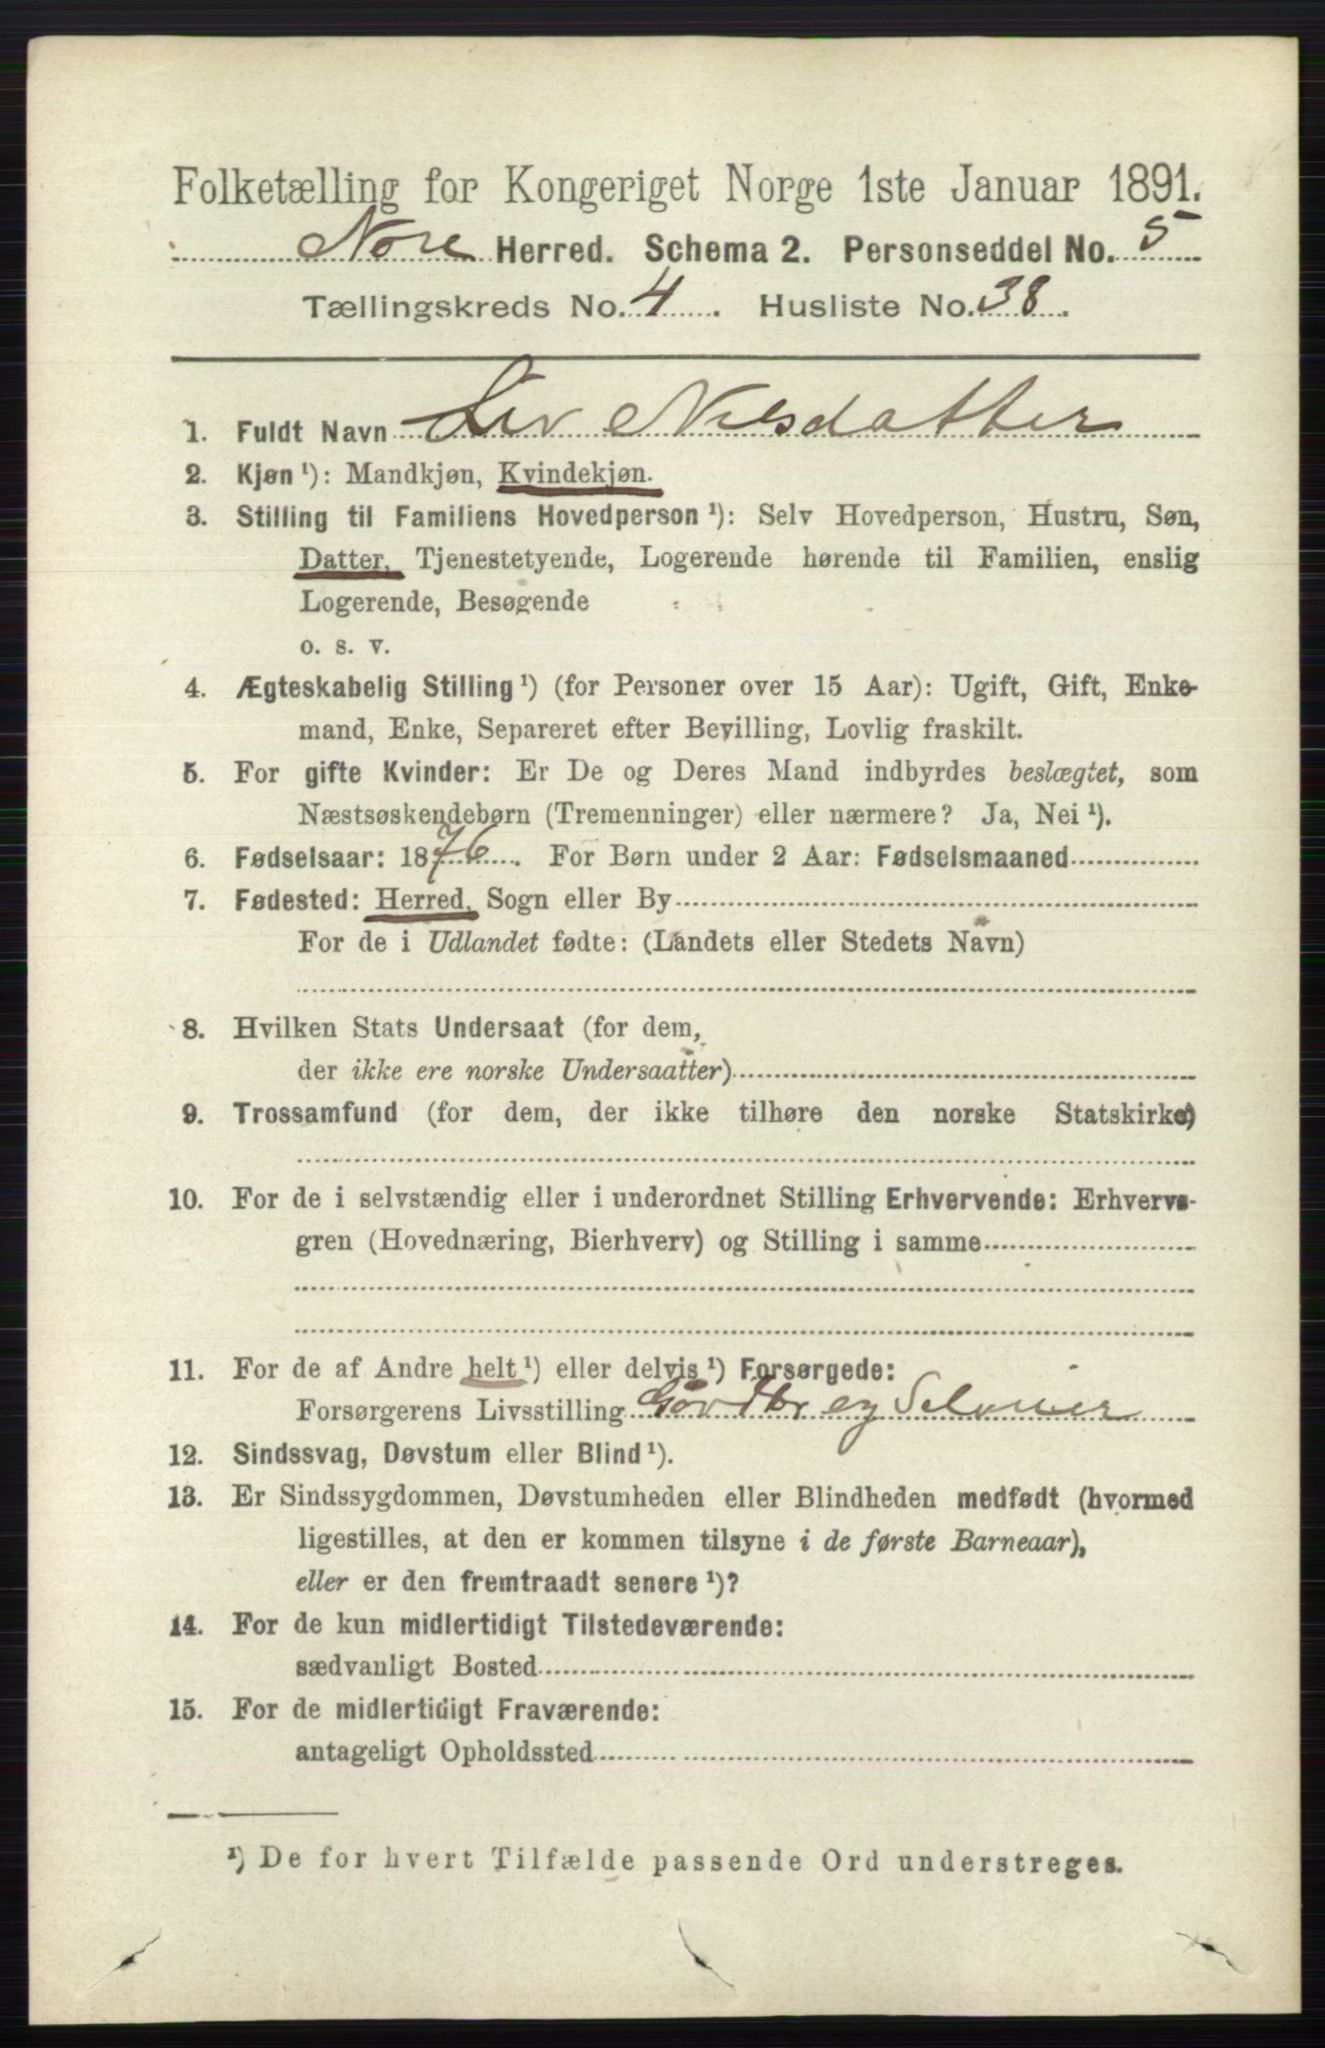 Folketælling for Kongeriget Norge 1ste Januar 1891.
Nore Herred. Schema 2. Personseddel No. 5
Tællingskreds No. 4. Husliste No. 38.
1. Fuldt Navn Liv Nilsdatter
2. Kjøn ¹): Mandkjøn, Kvindekjøn.
3. Stilling til Familiens Hovedperson ¹): Selv Hovedperson, Hustru, Søn,
Datter, Tjenestetyende, Logerende hørende til Familien, enslig
Logerende, Besøgende
o. s. v.
4. Ægteskabelig Stilling ¹) (for Personer over 15 Aar): Ugift, Gift, Enke-
mand, Enke, Separeret efter Bevilling, Lovlig fraskilt.
5. For gifte Kvinder: Er De og Deres Mand indbyrdes beslægtet, som
Næstsøskendebørn (Tremenninger) eller nærmere? Ja, Nei ¹).
6. Fødselsaar: 1876. For Børn under 2 Aar: Fødselsmaaned
7. Fødested: Herred, Sogn eller By
For de i Udlandet fødte: (Landets eller Stedets Navn)
8. Hvilken Stats Undersaat (for dem,
der ikke ere norske Undersaatter)
9. Trossamfund (for dem, der ikke tilhøre den norske Statskirke)
10. For de i selvstændig eller i underordnet Stilling Erhvervende: Erhvervs-
gren (Hovednæring, Bierhverv) og Stilling i samme
11. For de af Andre helt ¹) eller delvis ¹) Forsørgede:
Forsørgerens Livsstilling Gårdbr og Selveier
12. Sindssvag, Døvstum eller Blind ¹).
13. Er Sindssygdommen, Døvstumheden eller Blindheden medfødt (hvormed
ligestilles, at den er kommen tilsyne i de første Barneaar),
eller er den fremtraadt senere ¹)?
14. For de kun midlertidigt Tilstedeværende:
sædvanligt Bosted
15. For de midlertidigt Fraværende:
antageligt Opholdssted
¹) De for hvert Tilfælde passende Ord understreges.